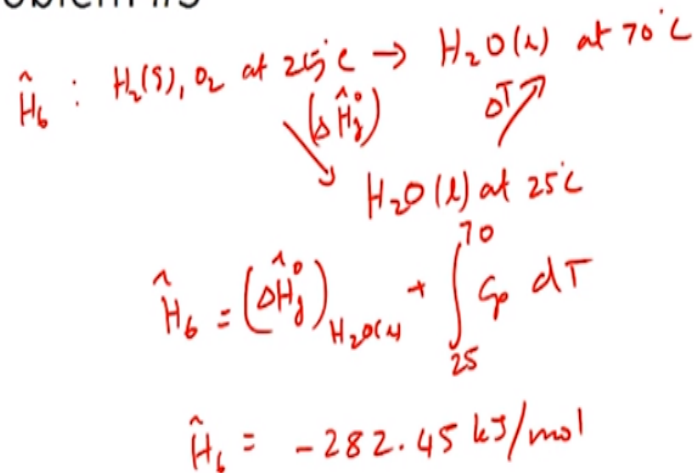 oblem #5
Ĥ₆ : H₂(g), O₂ at 25°C → H₂O(l) at 70°C
(ΔĤf°) ΔT
H₂O(l) at 25°C
Ĥ₆ = (ΔĤf°)H₂O(l) + ∫₂₅⁷⁰ Cp dT
Ĥ₆ = -282.45 kJ/mol